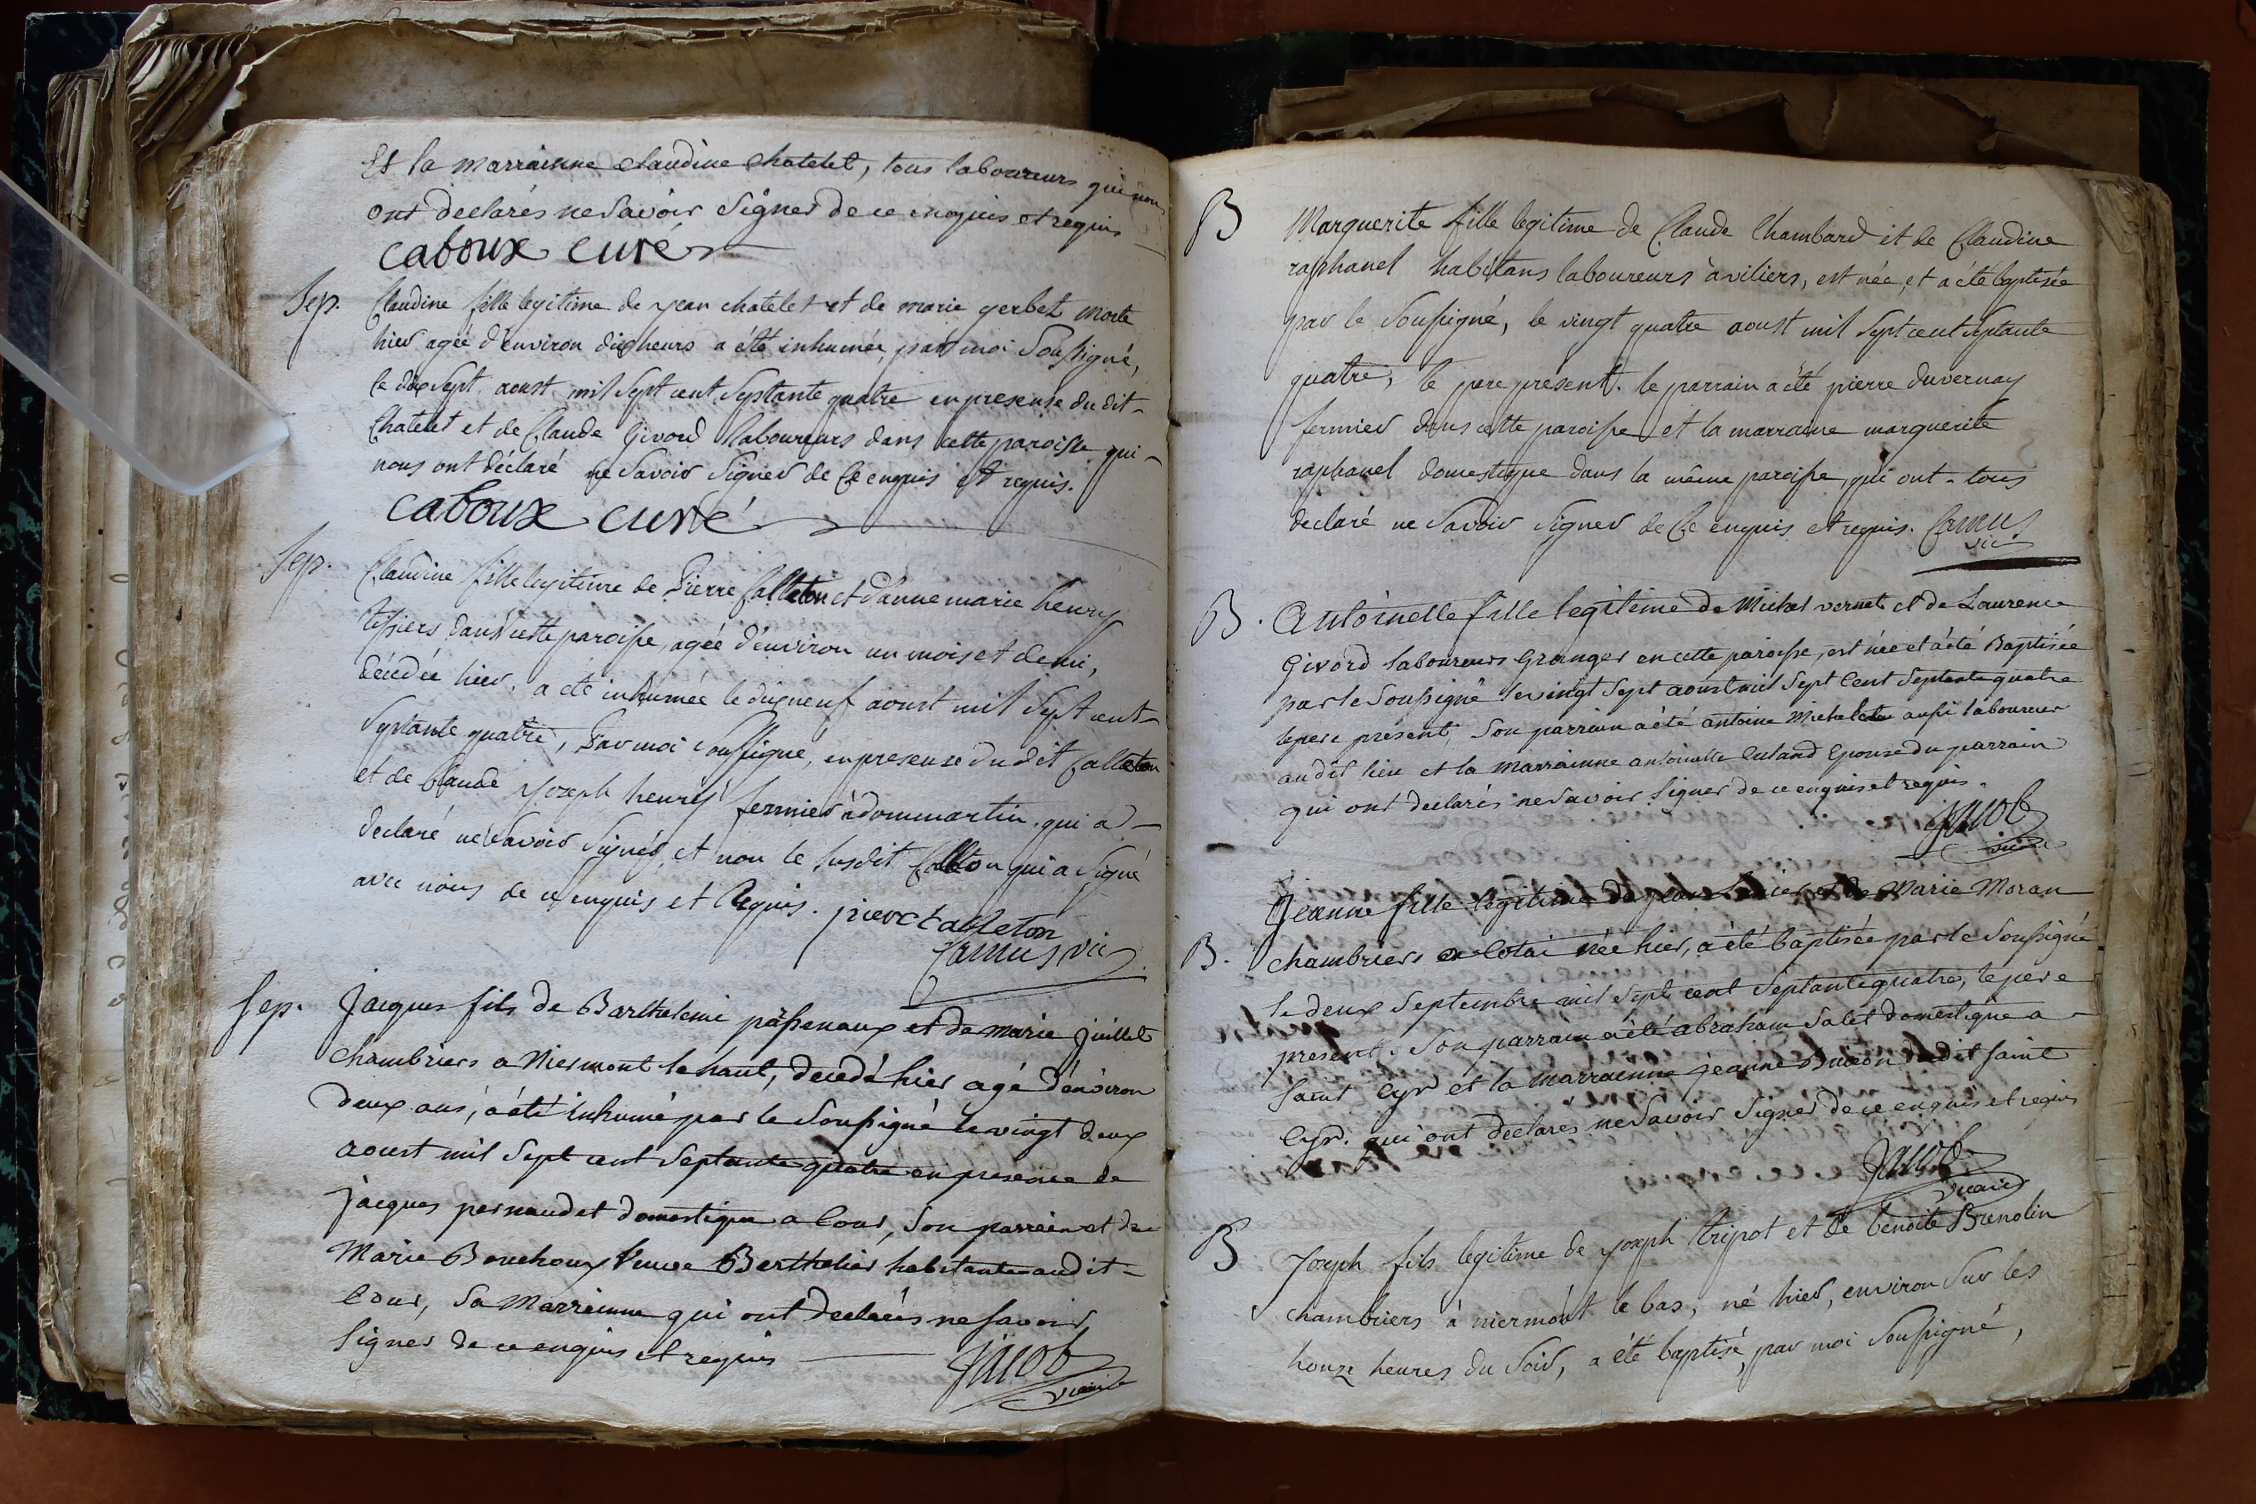 Et la marrainne claudine chatelet, tous laboureurs qui nous
ont declarés ne Savoir Signer de ce enquis et requis
caboux curé
Sep.
Claudine fille legitime de jean chatelet et de marie gerbet morte
hier agée d'environ dix heurs a été inhumée, par moi Soussigné,
le dix Sept aoust mil Sept cent Septante quatre en presense du dit
Chatelet et de Claude Givord laboureurs dans cette paroisse qui
nous ont déclaré ne Savoir Signer de Ce enquis et requis.
caboux curé
Sep.
Claudine fille legitime de Pierre Calleton et d'anne marie henry
tessiers dans cette paroisse, agée d'environ un mois et demi,
décédée hier, a été inhumée le dix neuf aoust mil Sept cent
Septante quatre, Par moi soussigné, en presense du dit Calleton
et de Claude joseph henry fermier à dommartin qui a
declaré ne Savoir Signer, et non le susdit Calleton qui a Signé
avec nous de ce enquis et Requis. pierre Calleton
Camus vic
Sep.
Jacques fils de Barthelemi passenaux et de marie juillet
chambriers a Niermont le haut, decedé hier agé d'environ
deux ans, a été inhumé par le Soussigné le vingt deux
aoust mil Sept cent Septante quatre en presence de
jacques pernaudet domestique a Cour, Son parrein et de
Marie Bouchoux Veuve Berthelier habitante audit
Cour, Sa Marrainne qui ont declarés ne Savoir
Signer de ce enquis et requis
jacob
vicaire
B
Marguerite fille legitime de Claude Chambard et de Claudine
raphanel habitans laboureurs à viliers, est née, et a été baptisée
par le Soussigné, le vingt quatre aoust mil Sept cent Septante
quatre, le pere present. le parrain a été pierre duvernay
fermier dans cette paroisse et la marraine marguerite
raphanel domestique dans la même paroisse, qui ont tous
declaré ne Savoir Signer de Ce enquis et requis. Camus
vic
B.
Antoinette fille legitime de Michel vernet et de Laurence
Givord laboureurs Granger en cette paroisse, est née et a été Baptisée
par le Soussigné le vingt Sept aoust mil Sept Cent Septante quatre
le pere présent, Son parrain a été antoine Michel aussi laboureur
au dit lieu et la Marrainne antoinette Epouse du parrain
qui ont declarés ne Savoir Signer de ce enquis et requis.
jacob
vicaire
B.
Jeanne fille legitime de jean et de Marie Moran
chambriers a née hier, a été baptisée par le Soussigné
le deux Septembre mil Sept cent Septante quatre, le pere
present. Son parrain a été abraham Salet domestique a
Saint Cyr et la marrainne jeanne Buclon dudit Saint
Cyr. qui ont declarés ne Savoir Signer de ce enquis et requis
jacob
vicaire
B
Joseph fils legitime de joseph tripot et de benoite Brenolin
chambriers à niermont le bas, né hier, environ Sur les
honze heures du Soir, a été baptisé, par moi Soussigné,